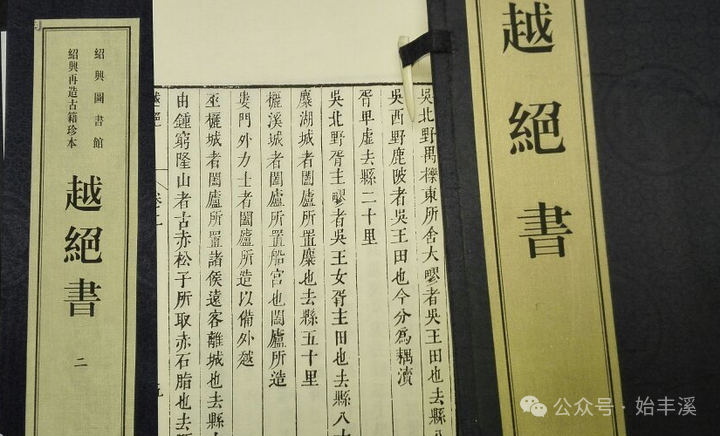 越絕書
吳北野禺櫟東所舍大疁者吳王田也去縣八
吳西野鹿陂者吳王田也今分爲耦瀆
胥卑虛去縣二十里
吳北野胥主疁者吳王女胥主田也去縣八十
麋湖城者闔廬所置麋也去縣五十里
欐溪城者闔廬所置船宮也闔廬所造
婁門外力士者闔廬所造以備外越
巫欐城者闔廬所置諸侯遠客離城也去縣
由鍾窮隆山者古赤松子所取赤石脂也去縣
越絕 卷二
紹興圖書館
紹興再造古籍珍本
越絕書
二
公众号·始丰溪